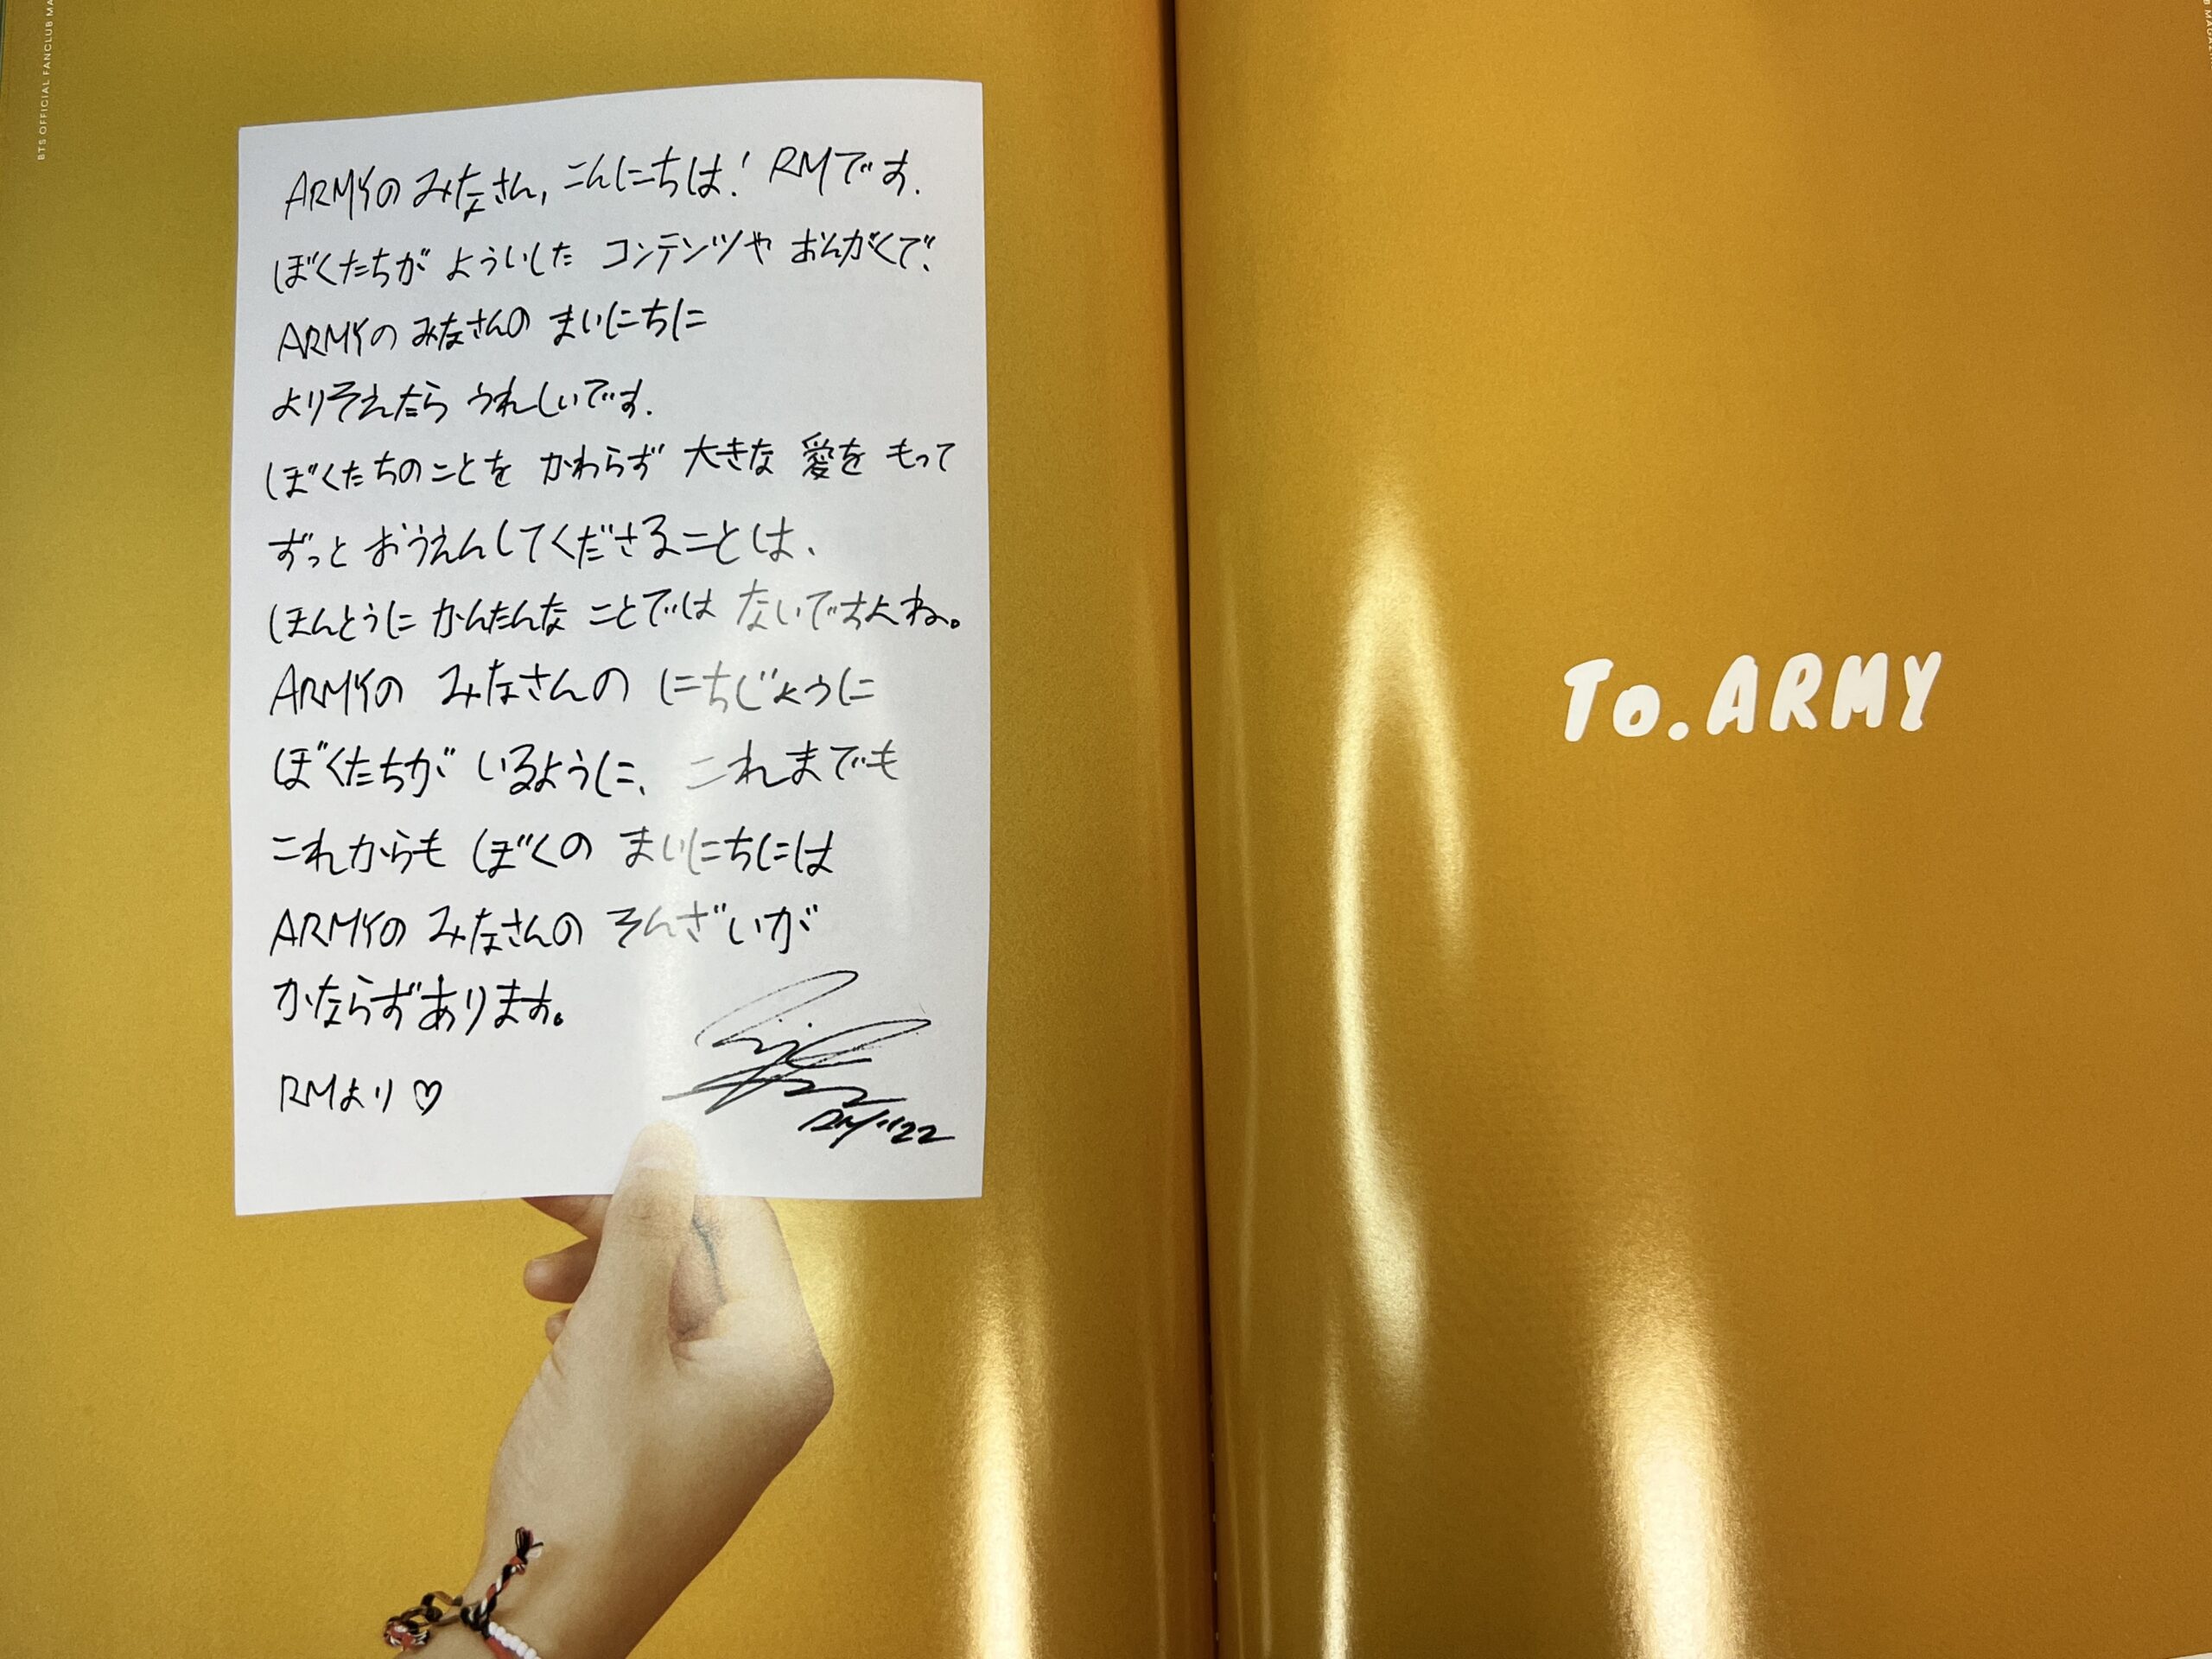 BTS OFFICIAL FANCLUB MA
ARMYの みなさん, こんにちは! RMです.
ぼくたちが よういした コンテンツや おんがくで、
ARMYの みなさんの まいにちに
よりそえたら うれしいです.
ぼくたちのことを かわらず 大きな 愛を もって
ずっと おうえんしてくださることは、
ほんとうに かんたんな ことでは ないですよね。
ARMYの みなさんの にちじょうに
ぼくたちが いるように、これまでも
これからも ぼくの まいにちには
ARMYの みなさんの そんざいが
かならずあります。
RMより♡
RM '22
To.ARMY